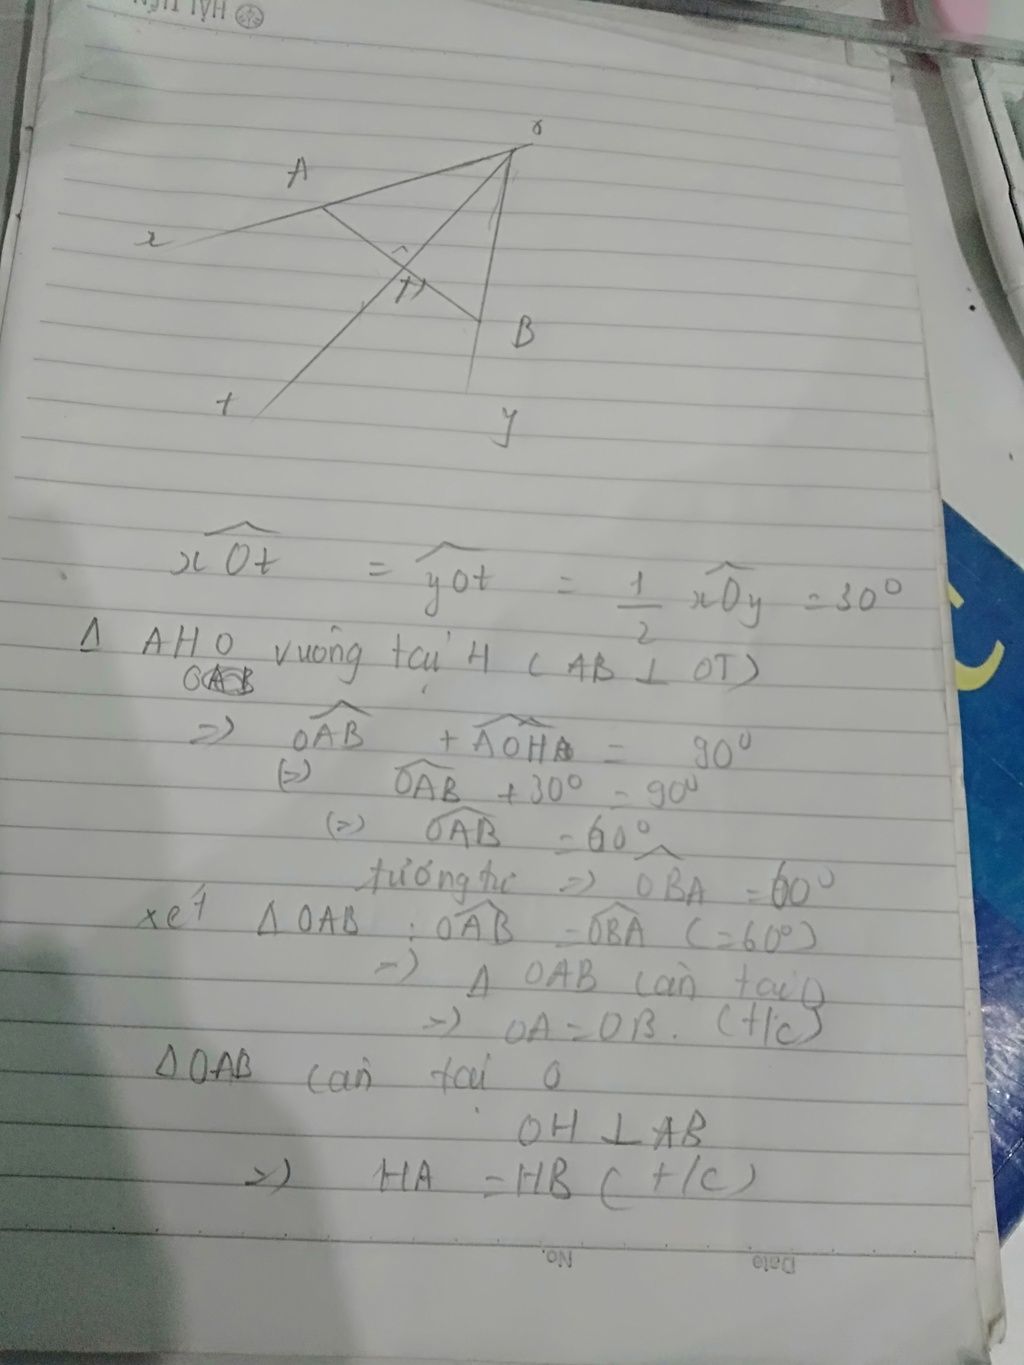 HẢI TIẾN
O
A
x
H
B
t
y
xOt = yOt = 1/2 xOy = 30°
Δ AHO vuông tại H (AB ⊥ OT)
=> OAB + AOH = 90°
(=) OAB + 30° = 90°
(=) OAB = 60°
tương tự => OBA = 60°
xét Δ OAB : OAB = OBA (=60°)
=> Δ OAB cân tại O
=> OA = OB. (t/c)
Δ OAB cân tại O
OH ⊥ AB
=> HA = HB (t/c)
No.
Date